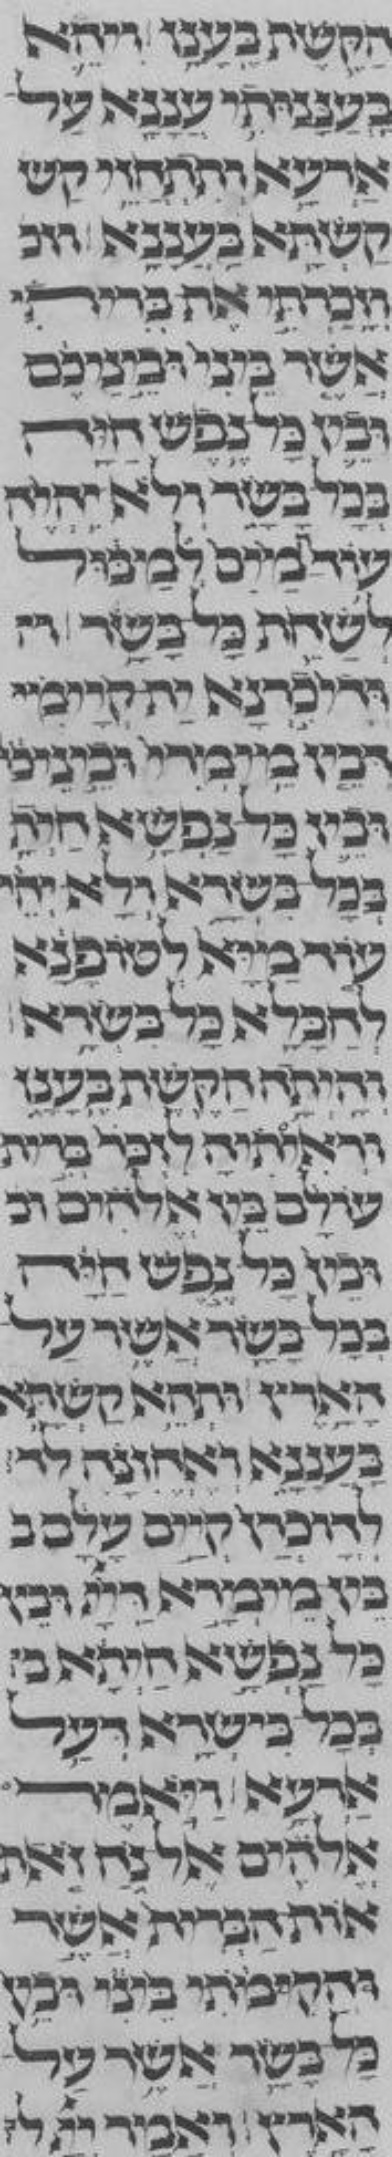 הַקֶּשֶׁת בֶּעָנָן ויהא
בְּעֲנָנוּתִי עננא על
אַרְעָא ותתחזי קש
קַשְׁתָּא בַּעֲנָנָא וזכ
וְזָכַרְתִּי אֶת בְּרִיתִי
אֲשֶׁר בֵּינִי וּבֵינֵיכֶם
וּבֵין כָּל נֶפֶשׁ חַיָּה
בְּכָל בָּשָׂר וְלֹא יִהְיֶה
עוֹד הַמַּיִם לְמַבּוּל
לְשַׁחֵת כָּל בָּשָׂר ודי
וּדְכִירְנָא יַת קְיָימִי
דְּבֵין מֵימְרִי וּבֵינֵיכ
וּבֵין כָּל נַפְשָׁא חַיְתָ
בְּכָל בִּשְׂרָא וְלָא יְהֵי
עוֹד מַיָּיא לְטוֹפָנָא
לְחַבָּלָא כָּל בִּשְׂרָא
וְהָיְתָה הַקֶּשֶׁת בֶּעָנָן
וּרְאִיתִיהָ לִזְכֹּר בְּרִית
עוֹלָם בֵּין אֱלֹהִים וב
וּבֵין כָּל נֶפֶשׁ חַיָּה
בְּכָל בָּשָׂר אֲשֶׁר עַל
הָאָרֶץ וּתְהֵא קַשְׁתָּא
בַּעֲנָנָא וְאֶחְזֵינַּהּ לד
לְדוּכְרַן קְיָים עָלָם ב
בֵּין מֵימְרָא דַּיְיָ וּבֵין
כָּל נַפְשָׁא חַיְתָא ב
בְּכָל בִּישְׂרָא דְּעַל
אַרְעָא וַיֹּאמֶר
אֱלֹהִים אֶל נֹחַ זֹאת
אוֹת הַבְּרִית אֲשֶׁר
הֲקִימֹתִי בֵּינִי וּבֵין
כָּל בָּשָׂר אֲשֶׁר עַל
הָאָרֶץ וַאֲמַר יְיָ ל